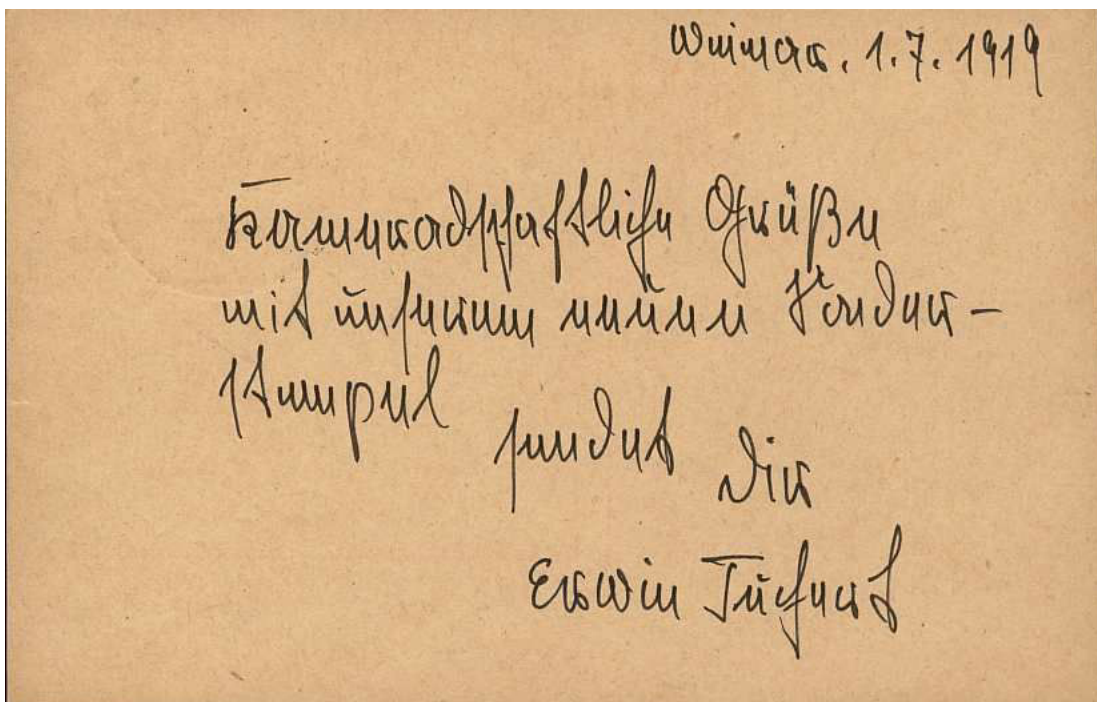 Weimar. 1.7.1919
Kameradschaftliche Grüße
mit unserem neuen Sonder-
stempel sendet Dir
Erwin Tuchert